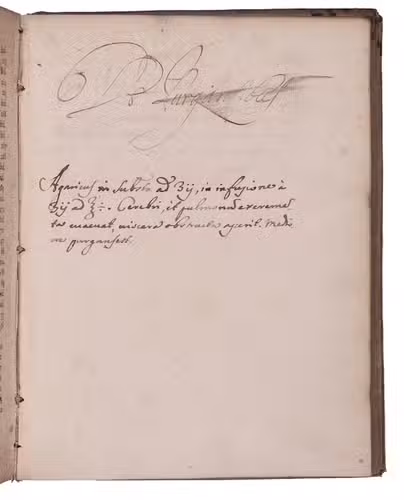 De Purgantibus
Agaricus in Substa ad ʒij, in infusione à
ʒij ad ℥. Cerebri, et pulmonū excremē
ta evacuat, viscera obstructa aperit.
purgans est.